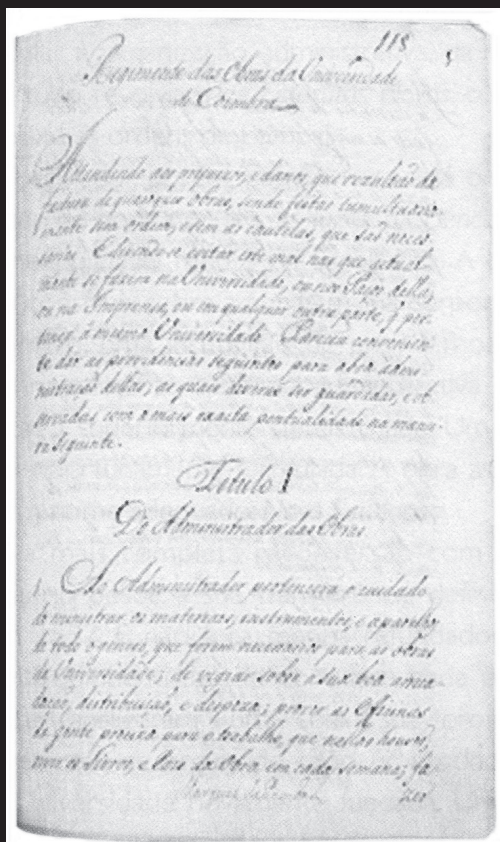 118
Regimento das Obras da Universidade
de Coimbra
Attendendo aos prejuizos, e danos, que rezultaõ da
factura de quaesquer obras, sendo feitas tumultuaria
mente sem ordem, e sem as cautelas, que saõ neces
sarias. E devendo-se evitar este mal nas que actual
mente se fazem na Universidade, ou nos Paços della,
ou na Imprensa, ou em qualquer outra parte, q̃ per
tença à mesma Universidade. Pareceu convenien
te dar as providencias seguintes para a boa admi
nistraçaõ dellas, as quaes deveráõ ser guardadas, e ob
servadas com a mais exacta pontualidade na manei
ra seguinte.
Titulo 1
Do Administrador das Obras
1. Ao Administrador pertencerá o cuidado
de ministrar os materiaes, instrumentos, e aparelhos
de todo o genero, que forem necessarios para as obras
da Universidade; de vigiar sobre a sua boa arreca
daçaõ, distribuiçaõ, e despeza; prover as Officinas
de gente precisa para o trabalho, que nellas houver,
os Livros, e da Obra em cada semana; fa
zer